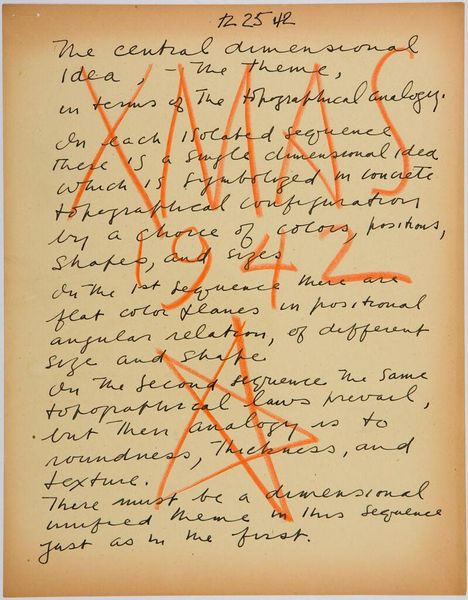 12 25 42
The central dimensional
idea, - The theme,
in terms of The topographical analogy.
In each isolated sequence
there is a single dimensional idea
which is symbolized in concrete
topographical configuration
by a choice of colors, positions,
shapes, and sizes
In the 1st sequence there are
flat color planes in positional
angular relation, of different
size and shape
In the second sequence the same
topographical laws prevail,
but their analogy is to
roundness, thickness, and
texture.
There must be a dimensional
unified theme in this sequence
just as in the first.
XMAS
1942